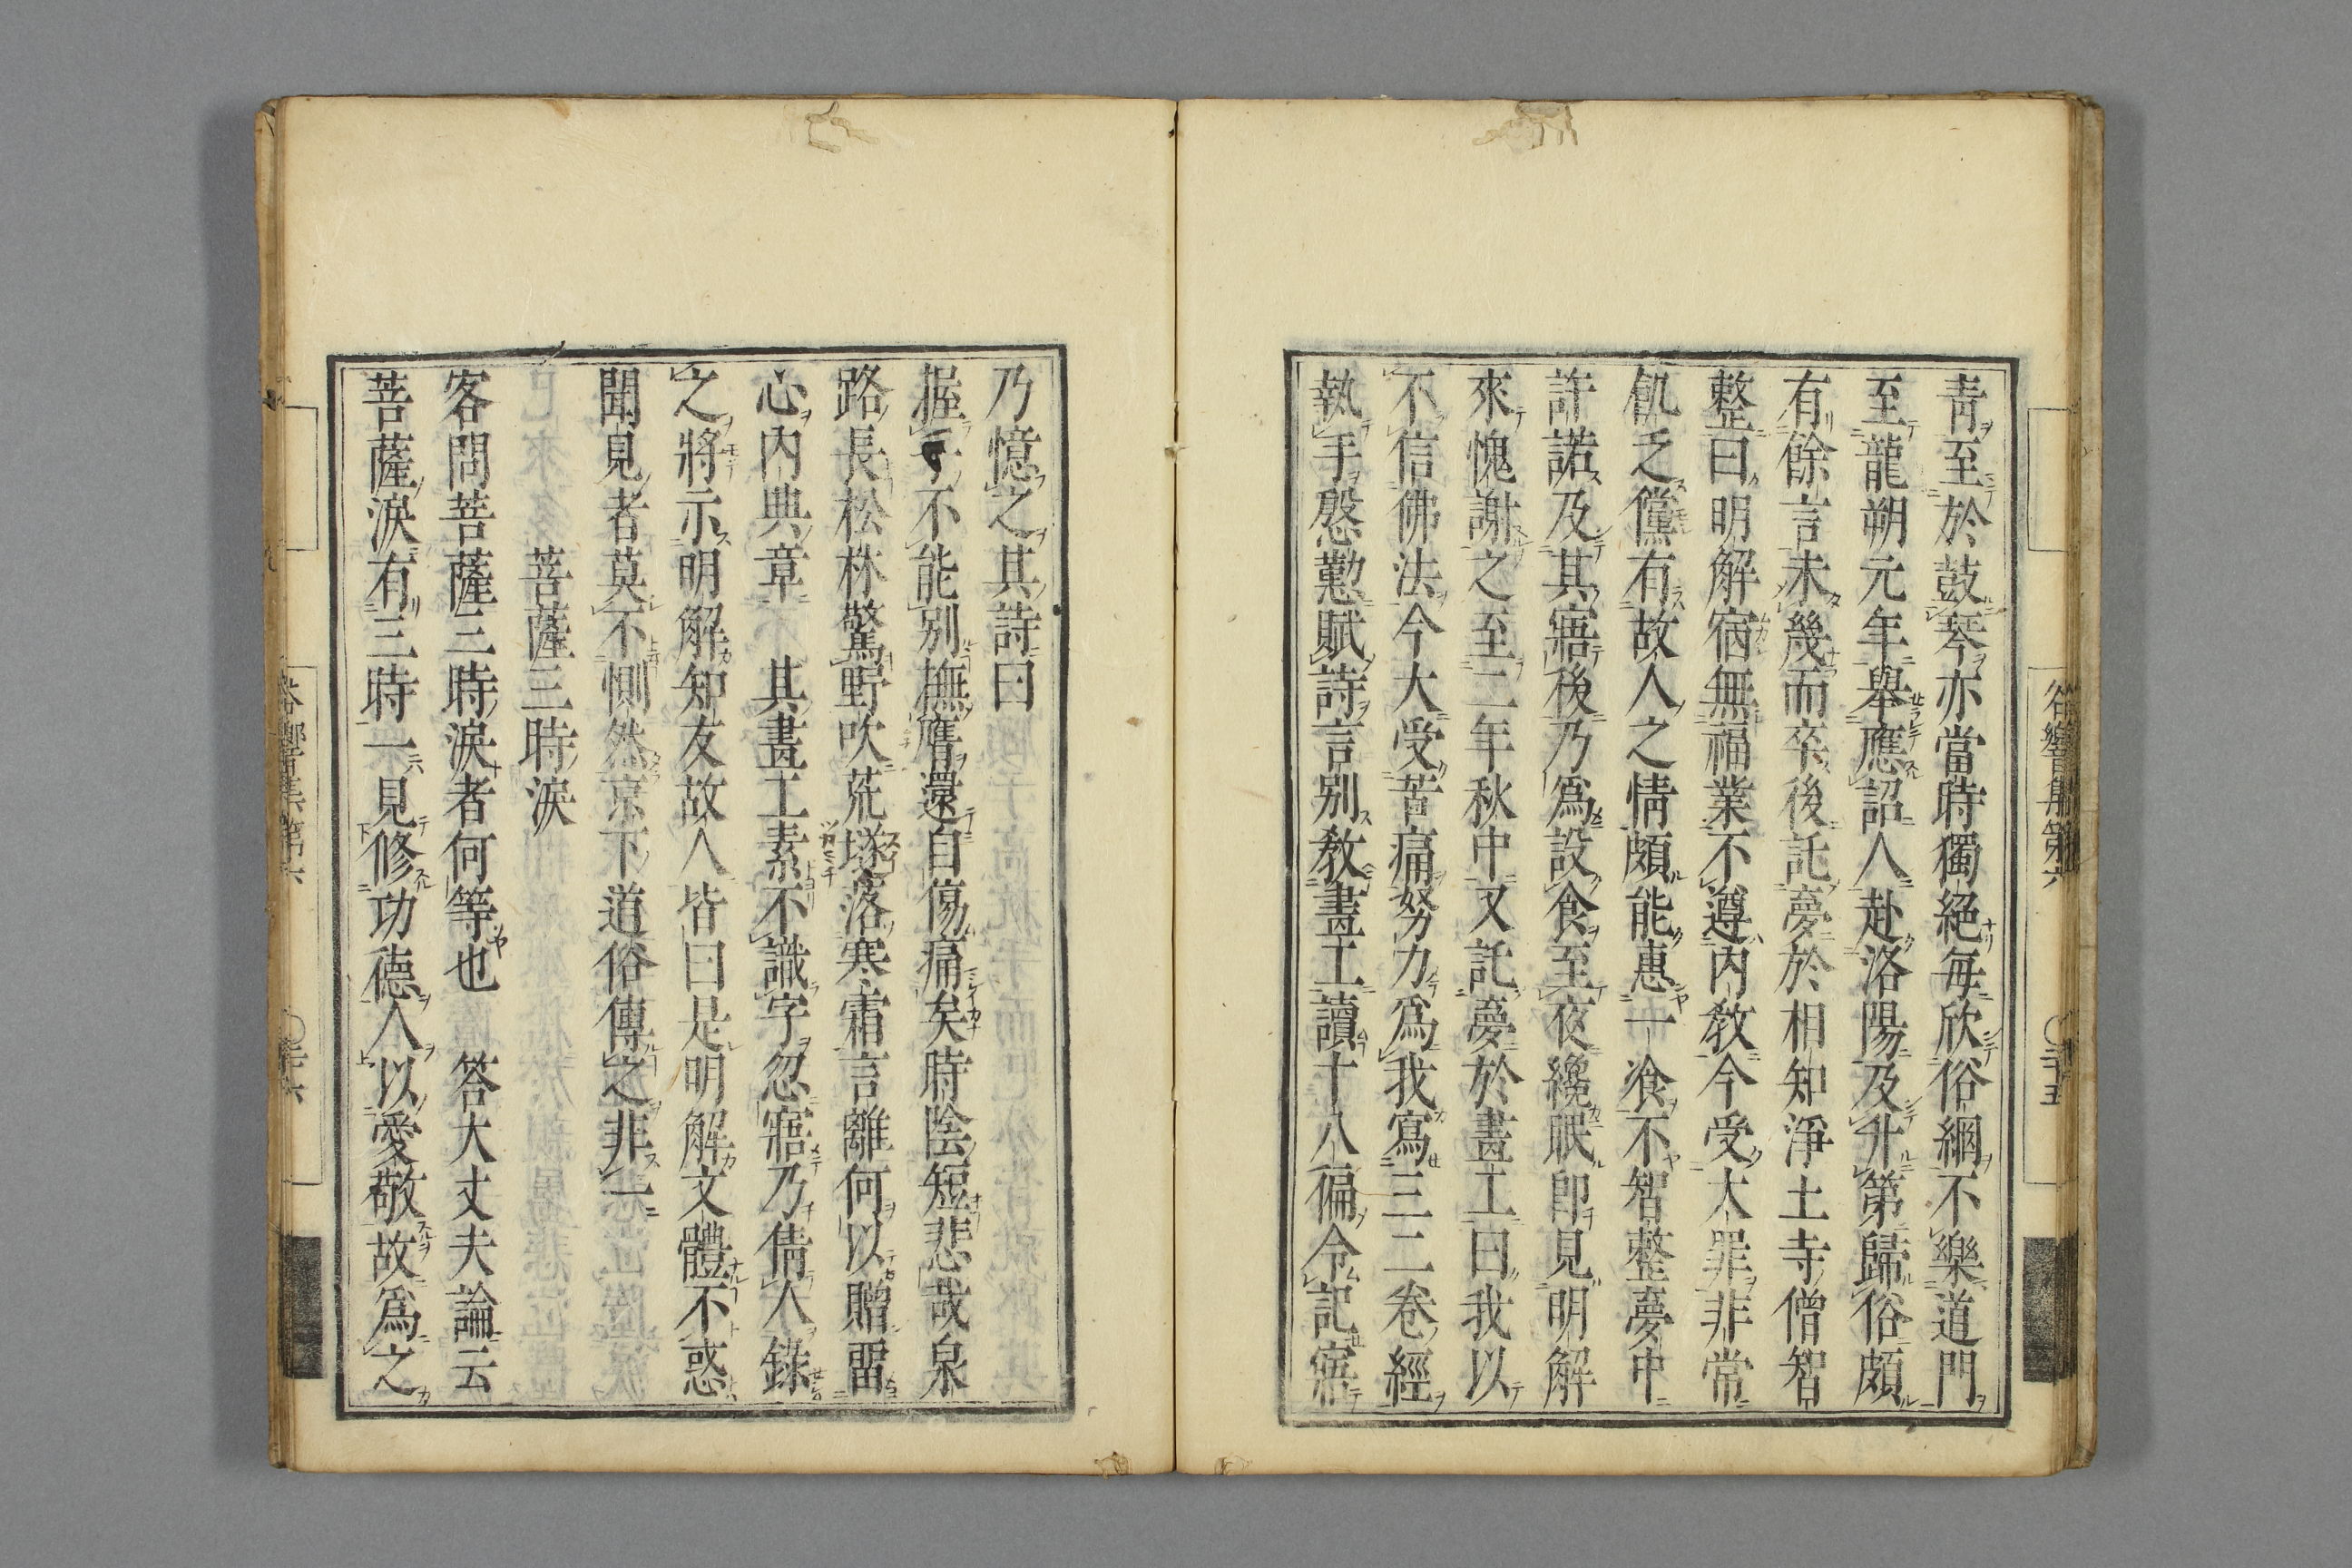 靑至於鼓琴亦當時獨絕每欣俗網不樂道門
至龍朔元年舉應詔人赴洛陽及升第歸俗頗
有餘言未幾而卒後託夢於相知淨土寺僧智
整曰明解宿無福業不遵內敎今受大罪非常
飢乏儻有故人之情頗能惠一飡不智整夢中
許諾及其寤後乃爲設食至夜纔眠卽見明解
來愧謝之至二年秋中又託夢於畫工曰我以
不信佛法今大受苦痛努力爲我寫三二卷經
執手慇懃賦詩言別敎畫工讀十八徧令記寤
乃憶之其詩曰
握手不能別撫膺還自傷痛矣時陰短悲哉泉
路長松林驚野吹荒墜落寒霜言離何以贈留
心內典章 其畫工素不識字忽寤乃倩人錄
之將示明解知友故人皆曰是明解文體不惑
聞見者莫不惻然京下道俗傳之非一
菩薩三時淚
客問菩薩三時淚者何等也 答大丈夫論云
菩薩淚有三時一見修功德人以愛敬故爲之
谷響集第六 〇三十五
谷響集第六 〇三十六